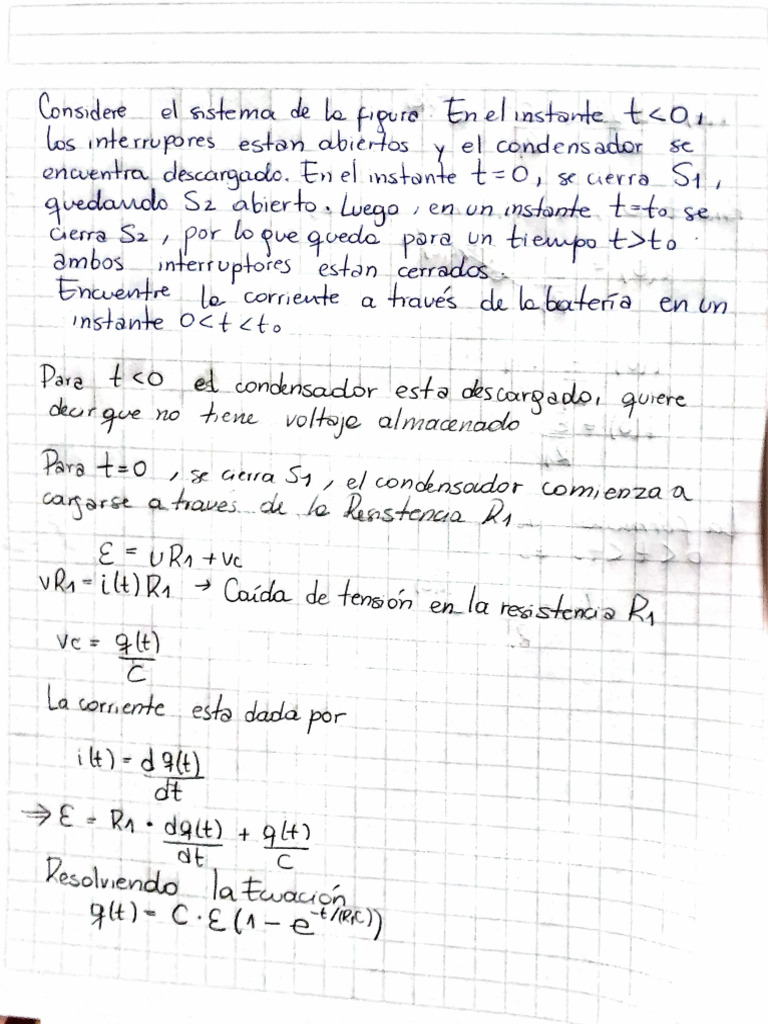 Considere el sistema de la figura. En el instante t<0,
los interrupores estan abiertos y el condensador se
encuentra descargado. En el instante t=0, se cierra S1,
quedando S2 abierto. Luego, en un instante t=to se
cierra S2, por lo que queda para un tiempo t>to
ambos interruptores estan cerrados.
Encuentre la corriente a través de la batería en un
instante 0<t<to
Para t<0 el condensador esta descargado, quiere
decir que no tiene voltaje almacenado
Para t=0, se cierra S1, el condensador comienza a
cargarse a traves de la Resistencia R1
ε = vR1 + vc
vR1 = i(t) R1 → Caída de tensión en la resistencia R1
vc = q(t)
C
La corriente esta dada por
i(t) = d q(t)
dt
⇒ ε = R1 · dq(t) + q(t)
dt C
Resolviendo la Ecuación
q(t) = C · ε (1 - e^-t/(R1C))